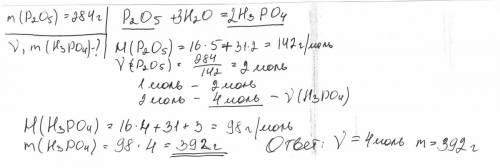 m(P₂O₅)=284г
ν, m(H₃PO₄)-?
P₂O₅ + 3H₂O = 2H₃PO₄
M(P₂O₅) = 16·5+31·2 = 142 г/моль
ν(P₂O₅) = 284/142 = 2 моль
1 моль - 2 моль
2 моль - 4 моль - ν(H₃PO₄)
M(H₃PO₄) = 16·4+31+3 = 98 г/моль
m(H₃PO₄) = 98·4 = 392 г
Ответ: ν = 4 моль m = 392 г